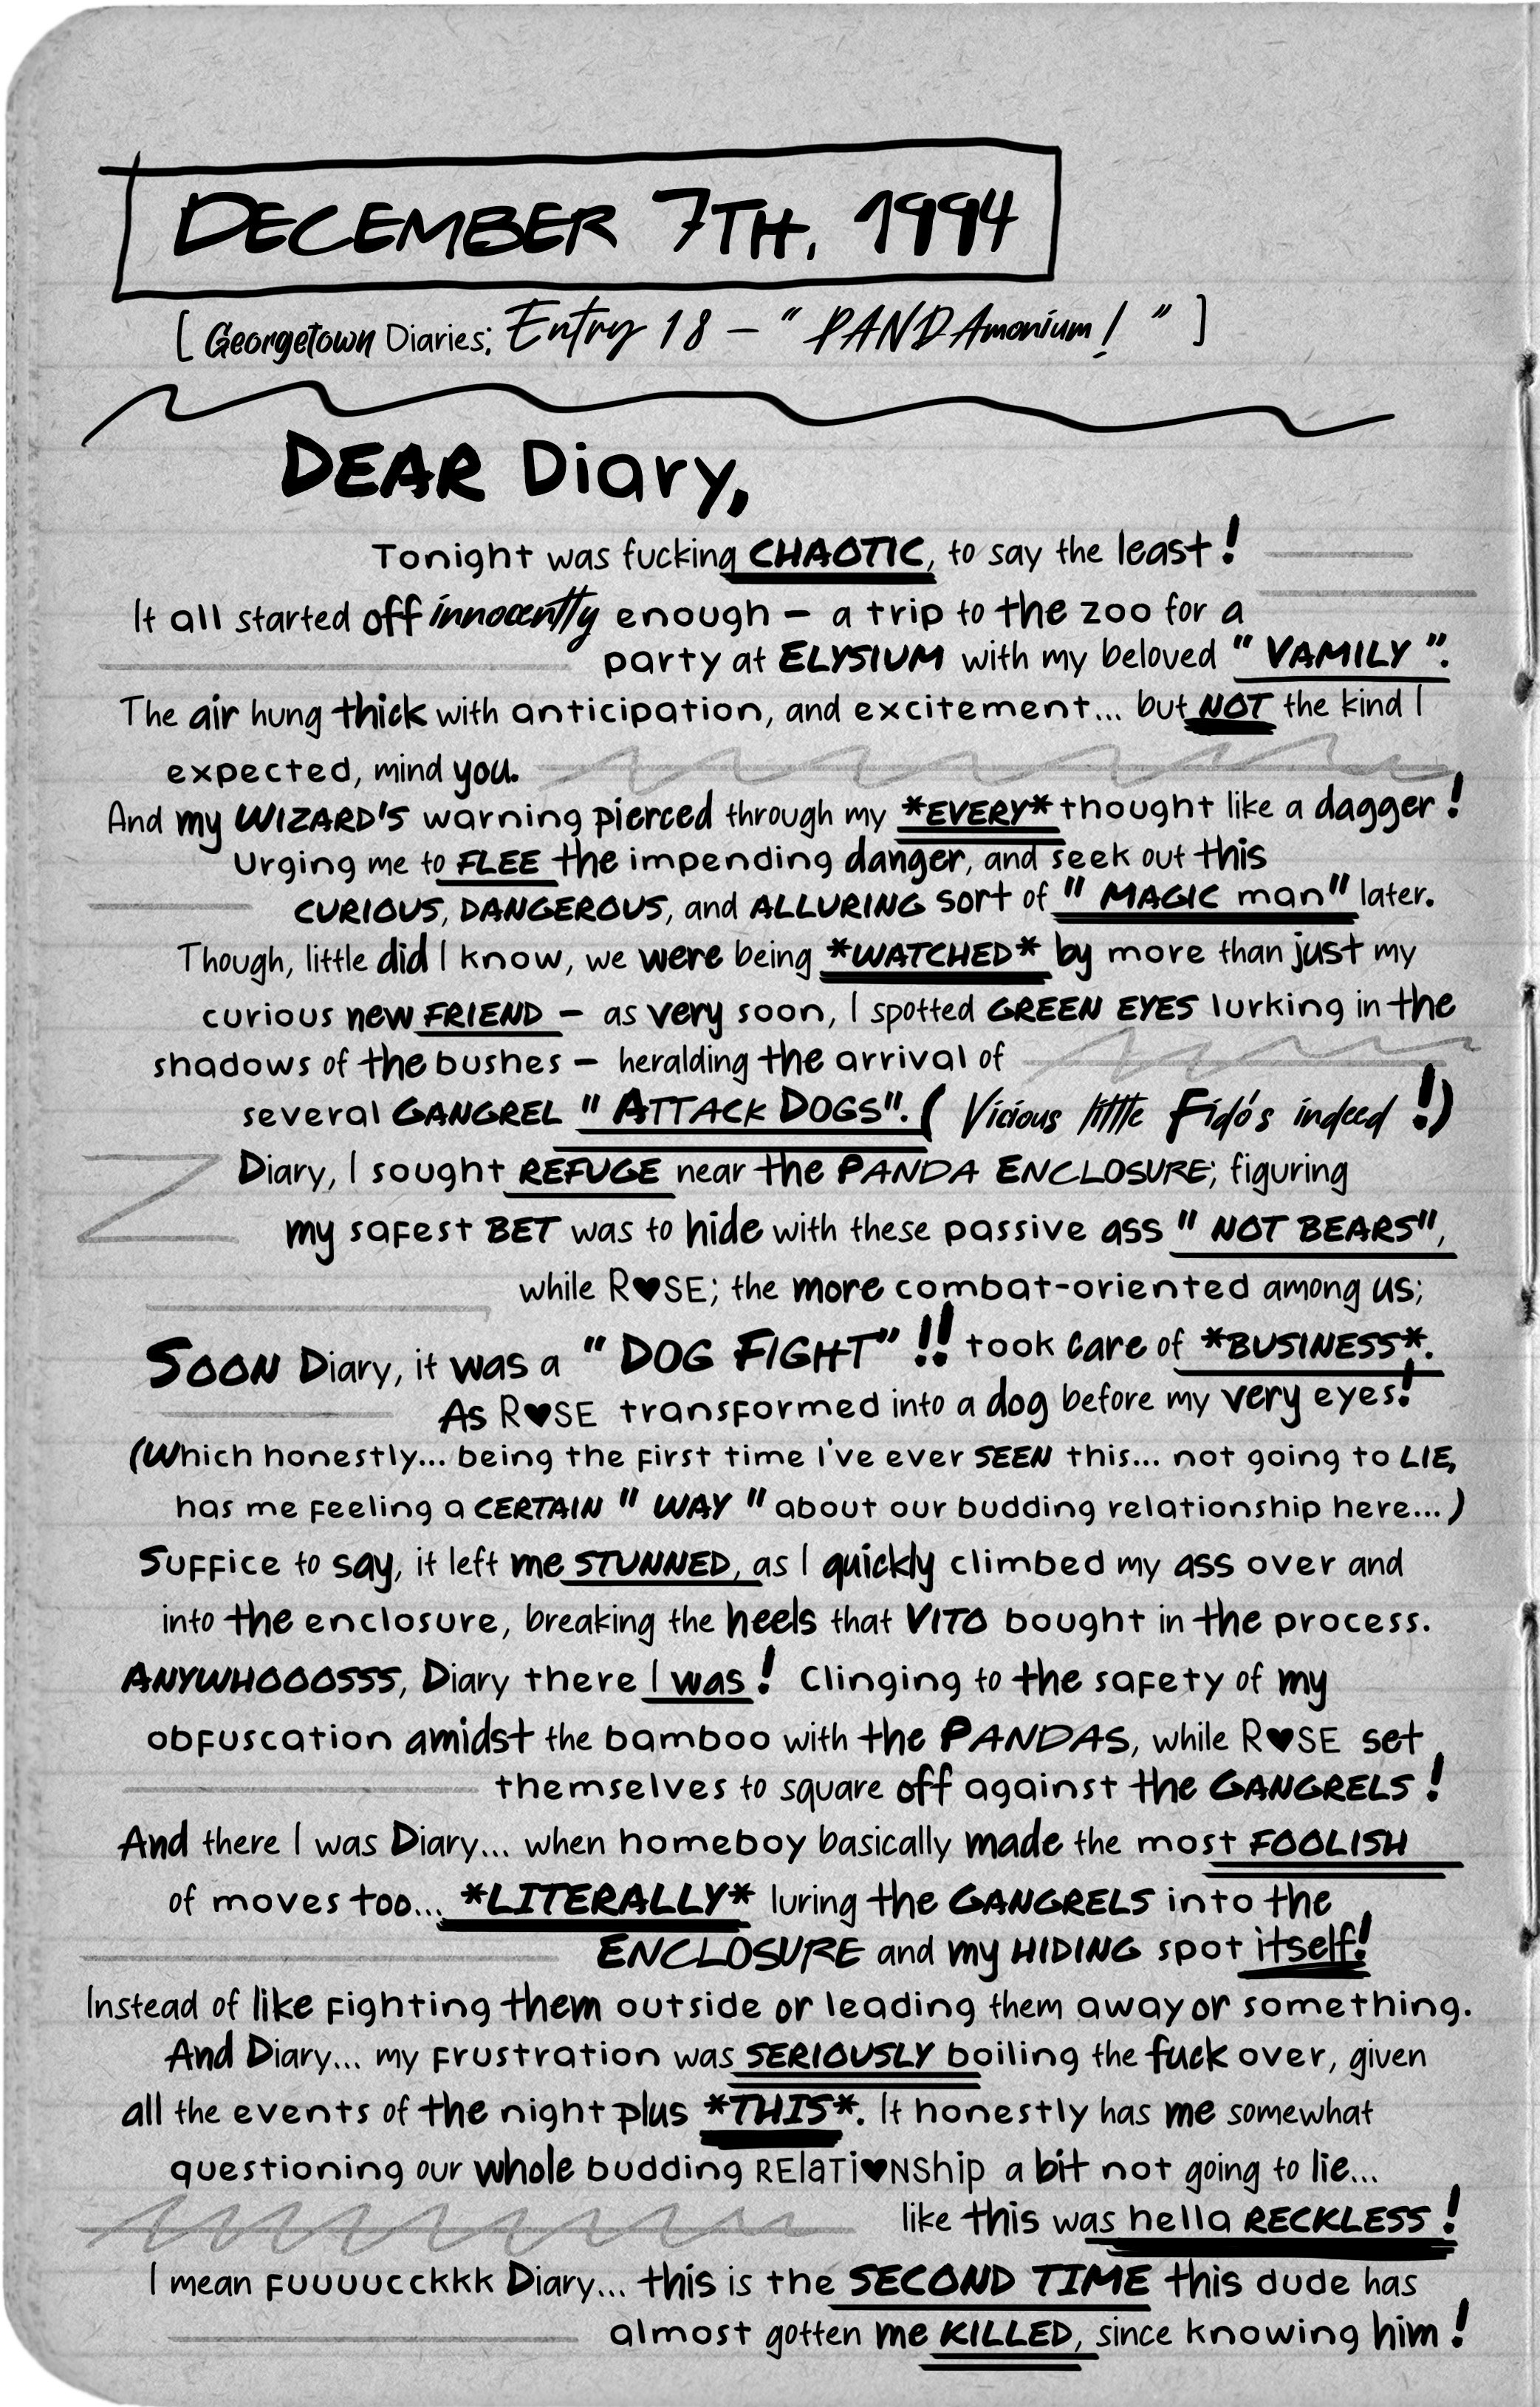 DECEMBER 7TH, 1994
[ Georgetown Diaries; Entry 18 – " PANDAmonium! " ]
DEAR Diary,
Tonight was fucking CHAOTIC, to say the least!
It all started off innocently enough – a trip to the zoo for a
party at ELYSIUM with my beloved " VAMILY ".
The air hung thick with anticipation, and excitement... but NOT the kind I
expected, mind you.
And my WIZARD'S warning pierced through my *EVERY* thought like a dagger!
Urging me to FLEE the impending danger, and seek out this
CURIOUS, DANGEROUS, and ALLURING sort of " MAGIC man" later.
Though, little did I know, we were being *WATCHED* by more than just my
curious new FRIEND – as very soon, I spotted GREEN EYES lurking in the
shadows of the bushes – heralding the arrival of
several GANGREL " ATTACK DOGS". ( Vicious little Fido's indeed !)
Diary, I sought REFUGE near the PANDA ENCLOSURE; figuring
my safest BET was to hide with these passive ass " NOT BEARS",
while R♥SE; the more combat-oriented among us;
SOON Diary, it was a " DOG FIGHT" !! took care of *BUSINESS*.
As R♥SE transformed into a dog before my very eyes!
(Which honestly... being the first time I've ever SEEN this... not going to LIE,
has me feeling a CERTAIN " WAY " about our budding relationship here... )
Suffice to say, it left me STUNNED, as I quickly climbed my ass over and
into the enclosure, breaking the heels that VITO bought in the process.
ANYWHOOOSSS, Diary there I was! Clinging to the safety of my
obfuscation amidst the bamboo with the PANDAS, while R♥SE set
themselves to square off against the GANGRELS!
And there I was Diary... when homeboy basically made the most FOOLISH
of moves too... *LITERALLY* luring the GANGRELS into the
ENCLOSURE and my HIDING spot itself!
Instead of like fighting them outside or leading them away or something.
And Diary... my frustration was SERIOUSLY boiling the fuck over, given
all the events of the night plus *THIS*. It honestly has me somewhat
questioning our whole budding RElaTi♥NShip a bit not going to lie...
like this was hella RECKLESS!
I mean FUUUUCCKKK Diary... this is the SECOND TIME this dude has
almost gotten me KILLED, since knowing him!